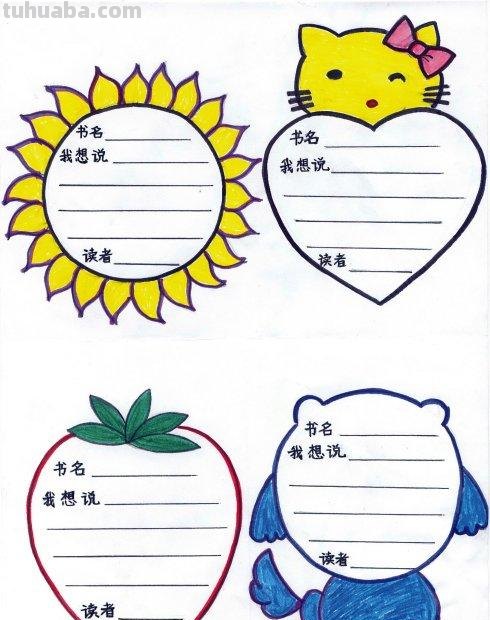 tuhuaba.com
书名
我想说
读者
书名
我想说
读者
书名
我想说
读者
书名
我想说
读者